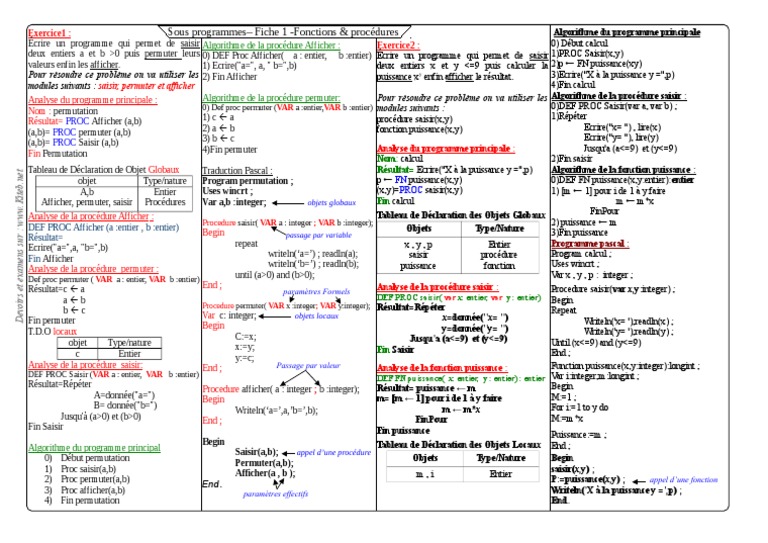 Sous programmes– Fiche 1 -Fonctions & procédures
Exercice1 :
Ecrire un programme qui permet de saisir
deux entiers a et b >0 puis permuter leurs
valeurs enfin les afficher.
Pour résoudre ce problème on va utiliser les
modules suivants : saisir, permuter et afficher
Analyse du programme principale :
Nom : permutation
Résultat= PROC Afficher (a,b)
(a,b)= PROC permuter (a,b)
(a,b)= PROC Saisir (a,b)
Fin Permutation
Tableau de Déclaration de Objet Globaux
objet Type/nature
A,b Entier
Afficher, permuter, saisir Procédures
Analyse de la procédure Afficher :
DEF PROC Afficher (a :entier , b :entier)
Résultat=
Ecrire("a=",a, "b=",b)
Fin Afficher
Analyse de la procédure permuter :
Def proc permuter (VAR a : entier, VAR b :entier)
Résultat=c ← a
a ← b
b ← c
Fin permuter
T.D.O locaux
objet Type/nature
c Entier
Analyse de la procédure saisir:
DEF PROC Saisir (VAR a : entier, VAR b :entier)
Résultat=Répéter
A=donnée("a=")
B= donnée("b=")
Jusqu'à (a>0) et (b>0)
Fin Saisir
Algorithme du programme principal
0) Début permutation
1) Proc saisir(a,b)
2) Proc permuter(a,b)
3) Proc afficher(a,b)
4) Fin permutation
Devoirs et examens sur : www. Kiteb.net
Algorithme de la procédure Afficher :
0) DEF Proc Afficher( a : entier, b :entier)
1) Ecrire("a=", a, " b=",b)
2) Fin Afficher
Algorithme de la procédure permuter:
0) Def proc permuter (VAR a : entier,VAR b :entier)
1) c ← a
2) a ← b
3) b ← c
4)Fin permuter
Traduction Pascal :
Program permutation ;
Uses wincrt ;
Var a,b :integer; objets globaux
Procedure saisir( VAR a : integer ; VAR b :integer);
Begin passage par variable
repeat
writeln('a=') ; readln(a);
writeln('b=') ; readln(b);
until (a>0) and (b>0);
End ;
paramètres Formels
Procedure permuter( VAR x :integer; VAR y :integer);
Var c: integer; objets locaux
Begin
C:=x;
x:=y;
y:=c;
End ; Passage par valeur
Procedure afficher( a : integer ; b :integer);
Begin
Writeln('a=',a,'b=',b);
End ;
Begin
Saisir(a,b); appel d'une procédure
Permuter(a,b);
Afficher(a , b );
End . paramètres effectifs
Exercice2 :
Ecrire un programme qui permet de saisir
deux entiers x et y <=9 puis calculer la
puissance xʸ enfin afficher le résultat.
Pour résoudre ce problème on va utiliser les
modules suivants :
procédure saisir(x,y)
fonction puissance(x,y)
Analyse du programme principale :
Nom: calcul
Résultat= Ecrire("X à la puissance y =",p)
p ← FN puissance(x,y)
(x,y)=PROC saisir(x,y)
Fin calcul
Tableau de Déclaration des Objets Globaux
Objets Type/Nature
x , y , p Entier
saisir procédure
puissance fonction
Analyse de la procédure saisir :
DEF PROC saisir( var x: entier, var y : entier)
Résultat=Répéter
x=donnée("x= ")
y=donnée("y= ")
Jusqu'a (a<=9) et (y<=9)
Fin Saisir
Analyse de la fonction puissance :
DEF FN puissance( x: entier, y : entier) : entier
Résultat= puissance ← m
m= [m ← 1] pour i de 1 à y faire
m ← m*x
FinPour
Fin puissance
Tableau de Déclaration des Objets Locaux
Objets Type/Nature
m , i Entier
Algorithme du programme principale
0) Début calcul
1)PROC Saisir(x,y)
2)p ← FN puissance(x,y)
3)Ecrire("X à la puissance y =",p)
4)Fin calcul
Algorithme de la procédure saisir :
0)DEF PROC Saisir(var a, var b) ;
1)Répéter
Ecrire("x= ") , lire(x)
Ecrire("y= "), lire(y)
Jusqu'a (a<=9) et (y<=9)
2)Fin saisir
Algorithme de la fonction puissance :
0)DEF FN puissance(x,y entier):entier
1) [m ← 1] pour i de 1 à y faire
m ← m*x
FinPour
2)puissance ← m
3)Fin puissance
Programme pascal :
Program calcul ;
Uses wincrt ;
Var x , y , p : integer ;
Procedure saisir(var x,y:integer) ;
Begin
Repeat
Writeln('x= ');readln(x) ;
Writeln('y= ');readln(y) ;
Until (x<=9) and (y<=9) ;
End ;
Function puissance(x,y:integer):longint ;
Var i:integer,m:longint ;
Begin
M:=1 ;
For i:=1 to y do
M:=m*x
Puissance:=m ;
End ;
Begin
saisir(x,y) ;
P:=puissance(x,y) ; appel d'une fonction
Writeln('X à la puissance y =',p) ;
End.